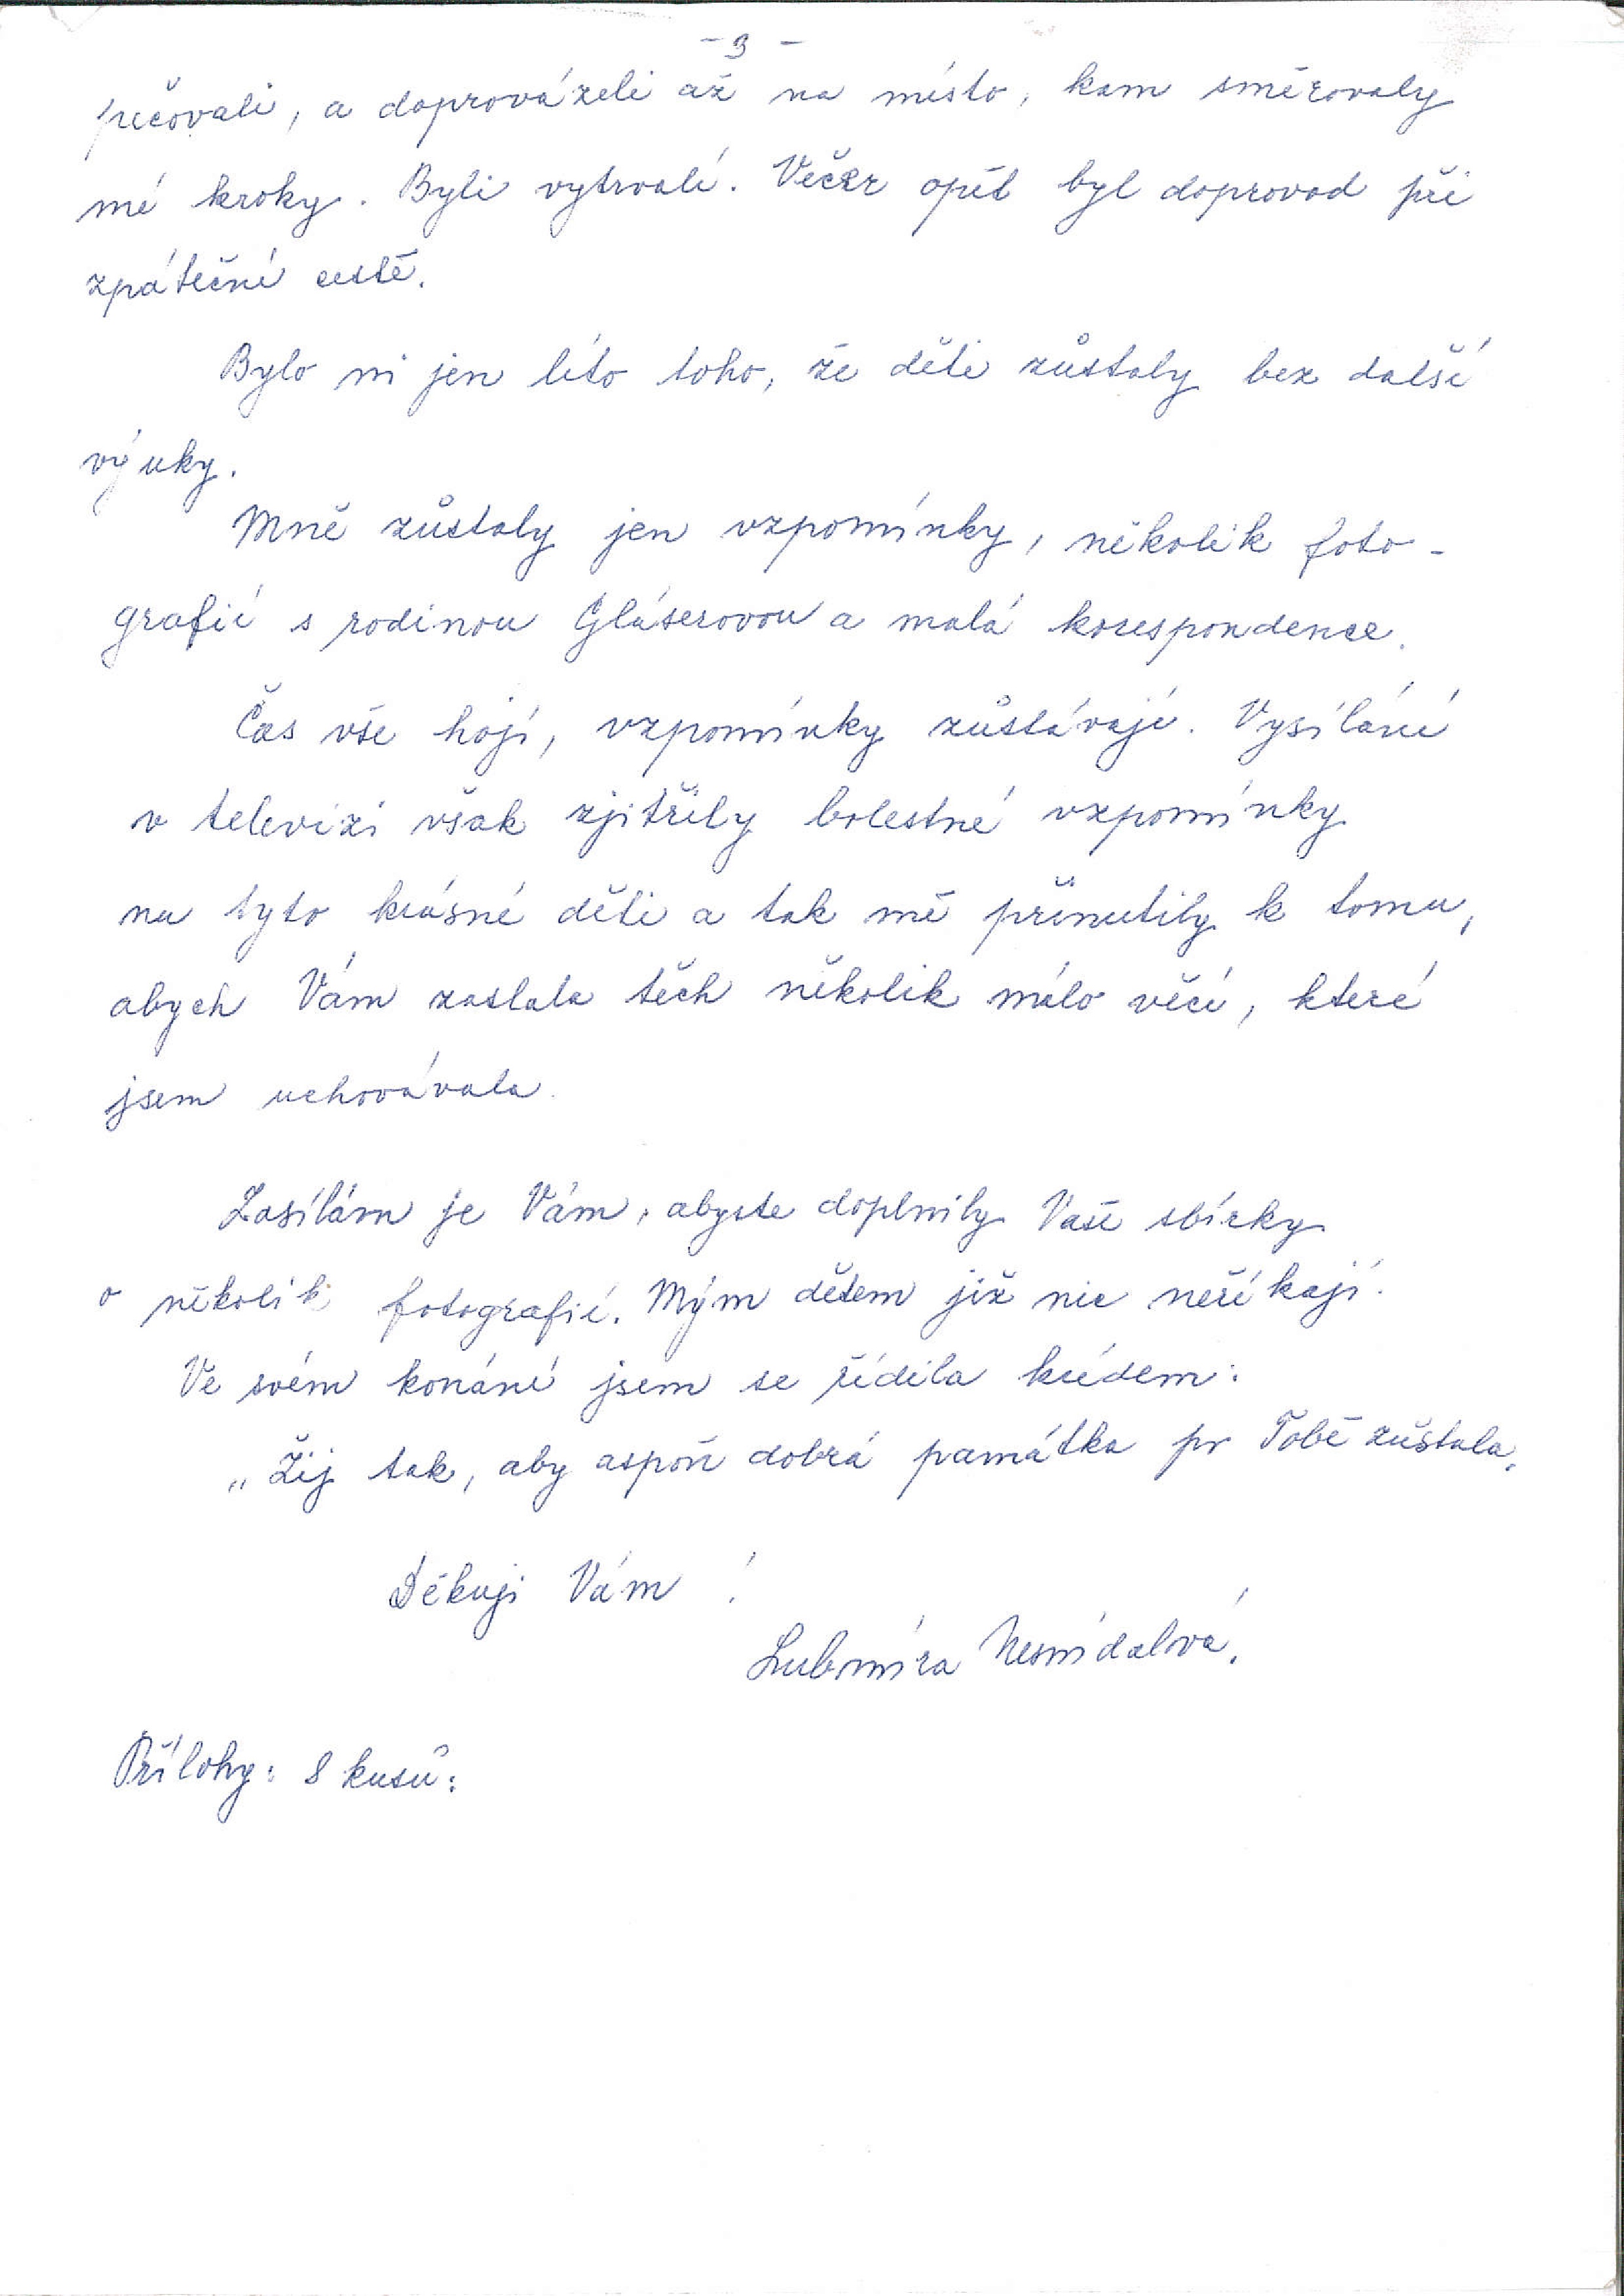 - 3 -
pečovali, a doprovázeli až na místo, kam směrovaly
mé kroky. Byli vytrvalí. Večer opět byl doprovod při
zpáteční cestě.
Bylo mi jen líto toho, že děti zůstaly bez další
výuky.
Mně zůstaly jen vzpomínky, několik foto-
grafií s rodinou Gláserovou a malá korespondence.
Čas vše hojí, vzpomínky zůstávají. Vysílání
v televizi však zjitřily bolestné vzpomínky
na tyto krásné děti a tak mě přinutily k tomu,
abych Vám zaslala těch několik málo věcí, které
jsem uchovávala.
Zasílám je Vám, abyste doplnily Vaše sbírky
o několik fotografií. Mým dětem již nic neříkají.
Ve svém konání jsem se řídila krédem:
„Žij tak, aby aspoň dobrá památka po Tobě zůstala.
Děkuji Vám!
Lubmíra Nesmídalová.
Přílohy: 8 kusů: